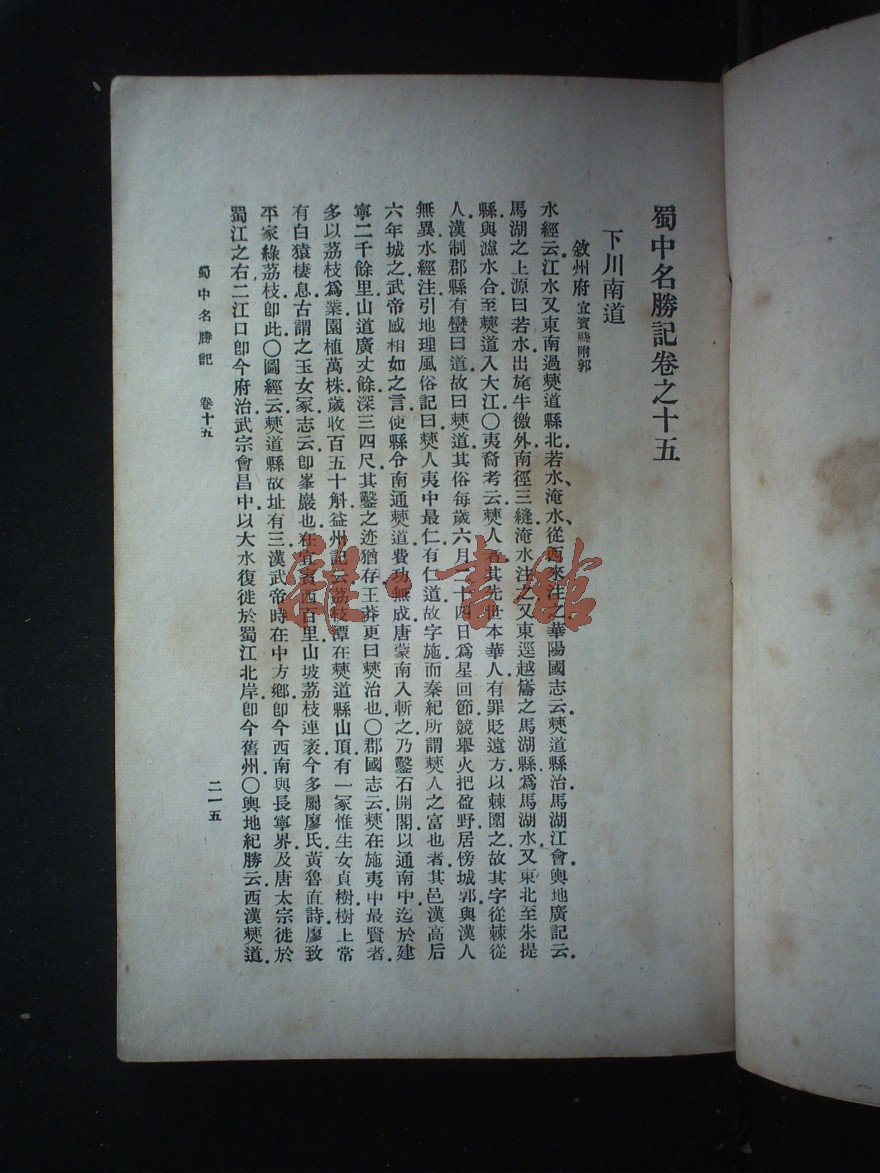 蜀中名勝記卷之十五
下川南道
敘州府宜賓縣附郭
水經云江水又東南過僰道縣北若水、淹水、從西來注之華陽國志云僰道縣治馬湖江會輿地廣記云
馬湖之上源曰若水出旄牛徼外南徑三縫淹水注之又東逕越巂之馬湖縣爲馬湖水又東北至朱提
縣與瀘水合至僰道入大江〇夷裔考云僰人者其先世本華人有罪貶遠方以棘圍之故其字從棘從
人漢制郡縣有蠻曰道故曰僰道其俗每歲六月二十四日爲星回節競舉火把盈野居傍城郭與漢人
無異水經注引地理風俗記曰僰人夷中最仁有仁道故字施而秦紀所謂僰人之富也者其邑漢高后
六年城之武帝感相如之言使縣令南通僰道費功無成唐蒙南入斬之乃鑿石開閣以通南中迄於建
寧二千餘里山道廣丈餘深三四尺其鑿之迹猶存王莽更曰僰治也〇郡國志云僰在施夷中最賢者
多以荔枝爲業園植萬株歲收百五十斛益州記云荔枝譚在僰道縣山頂有一冢惟生女貞樹樹上常
有白猿棲息古謂之玉女冢志云卽峯巖也在宜賓西百里山坡荔枝連袤今多屬廖氏黃魯直詩廖致
平家綠荔枝卽此〇圖經云僰道縣故址有三漢武帝時在中方鄉卽今西南與長寧界及唐太宗徙於
蜀江之右二江口卽今府治武宗會昌中以大水復徙於蜀江北岸卽今舊州〇輿地紀勝云西漢僰道
蜀中名勝記 卷十五
二一五
羅·書館